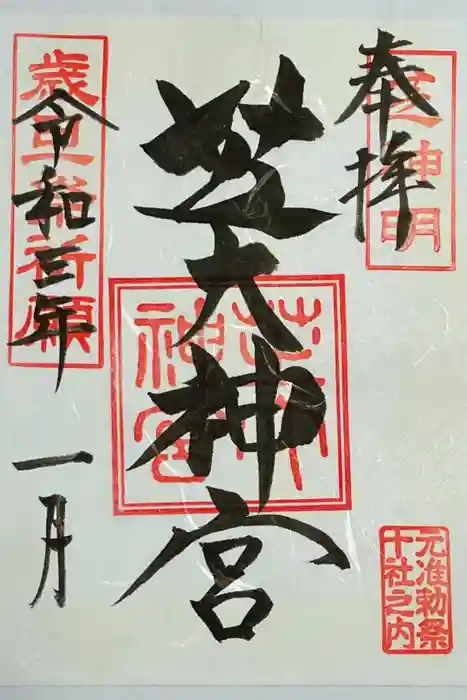 奉拝
芝神明
元准勅祭
十社之内
芝大神宮
芝大神宮
令和三年
一月
歳旦 祈願